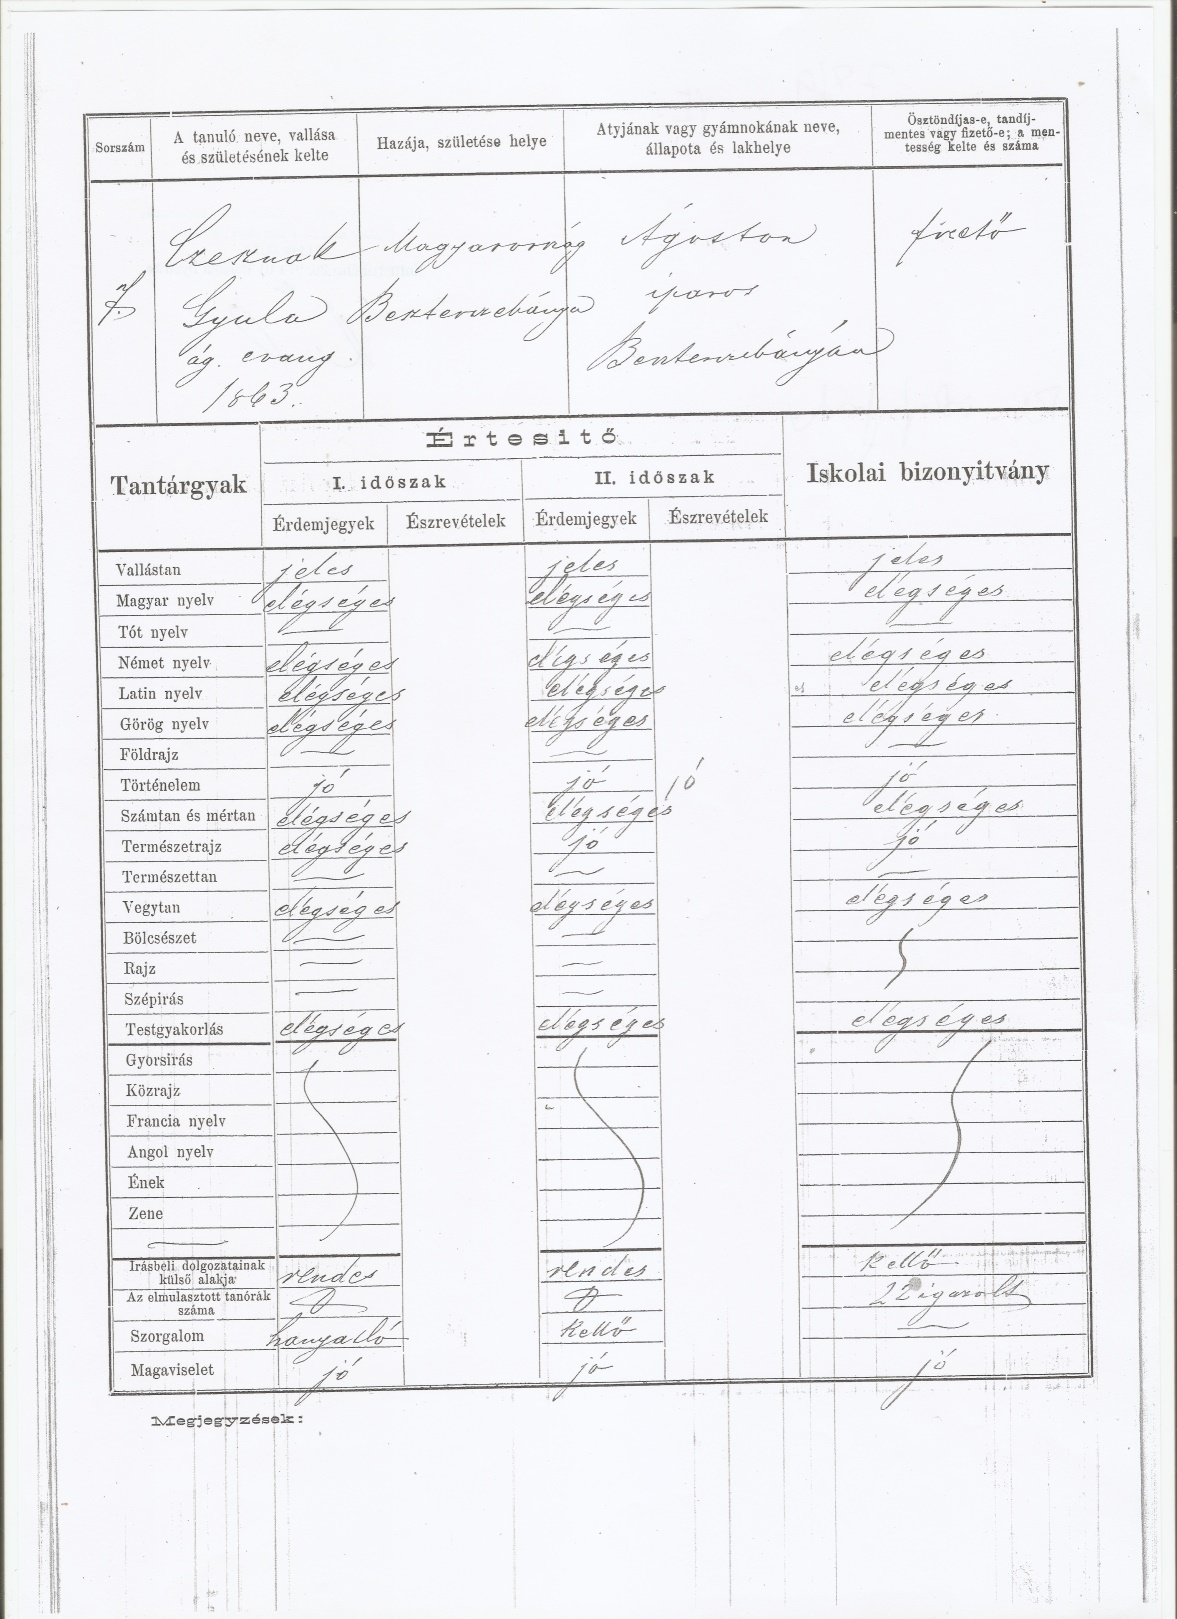 Sorszám
A tanuló neve, vallása
és születésének kelte
Hazája, születése helye
Atyjának vagy gyámnokának neve,
állapota és lakhelye
Ösztöndíjas-e, tandíj-
mentes vagy fizető-e; a men-
tesség kelte és száma
7.
Czesznak
Gyula
ág. evang.
1863.
Magyarország
Beszterczebánya
Ágoston
iparos
Beszterczebányán
fizető
Értesitő
Tantárgyak
I. időszak
II. időszak
Iskolai bizonyitvány
Érdemjegyek Észrevételek Érdemjegyek Észrevételek
Vallástan jeles jeles jeles
Magyar nyelv elégséges elégséges elégséges
Tót nyelv — — —
Német nyelv elégséges elégséges elégséges
Latin nyelv elégséges elégséges elégséges
Görög nyelv elégséges elégséges elégséges
Földrajz — — —
Történelem jó jó jó jó
Számtan és mértan elégséges elégséges elégséges
Természetrajz elégséges jó jó
Természettan — — —
Vegytan elégséges elégséges elégséges
Bölcsészet — —
Rajz — —
Szépirás — —
Testgyakorlás elégséges elégséges elégséges
Gyorsirás
Közrajz
Francia nyelv
Angol nyelv
Ének
Zene
Irásbeli dolgozatainak
külső alakja rendes rendes kellő
Az elmulasztott tanórák
száma 0 0 22 igazolt
Szorgalom hanyatló kellő —
Magaviselet jó jó jó
Megjegyzések: